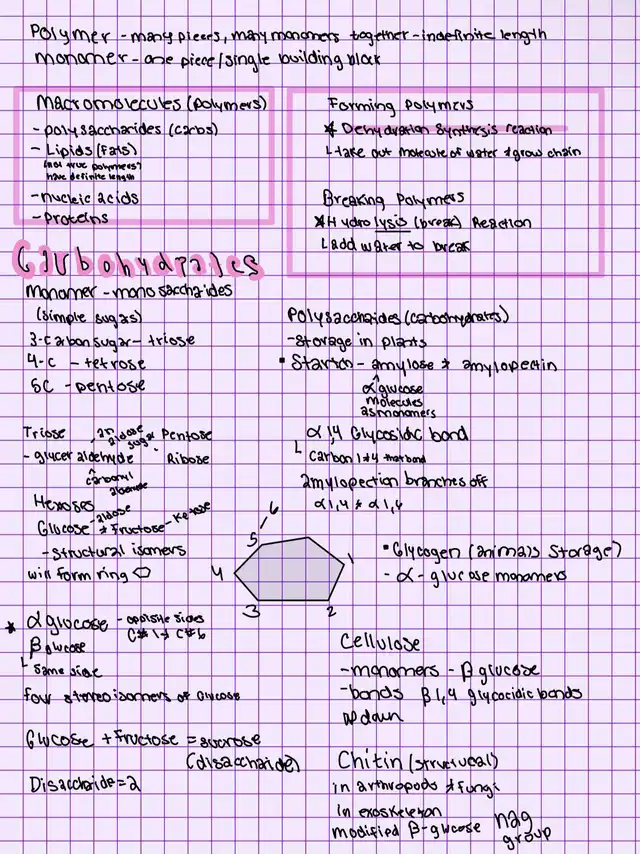 Polymer - many pieces, many monomers together - indefinite length
monomer - one piece/single building block
Macromolecules (polymers)
- polysaccharides (carbs)
- Lipids (Fats)
(not true polymers?
have definite length
- nucleic acids
- proteins
Forming polymers
* Dehydration synthesis reaction
L take out molecule of water & grow chain
Breaking Polymers
* Hydrolysis (break) Reaction
L add water to break
Carbohydrates
Monomer - monosaccharides
(simple sugars)
3-carbon sugar - triose
4-C - tetrose
5C - pentose
Triose
- glyceraldehyde
an aldose sugar
^ carbonyl
aldehyde
Pentose
Ribose
Hexoses
Glucose - aldose & Fructose - Ketose
- structural isomers
will form ring ⬡
* α glucose - opposite sides
C#1 & C#6
β glucose
L same side
four stereoisomers of Glucose
Glucose + Fructose = sucrose
(disaccharide)
Disaccharide = 2
Polysaccharides (carbohydrates)
- Storage in plants
• Starch - amylose & amylopectin
^
α glucose
molecules
as monomers
α 1,4 Glycosidic bond
L Carbon 1 & 4 that bond
amylopectin branches off
α 1,4 & α 1,6
6
5
4
3
2
1
• Glycogen (animals storage)
- α - glucose monomers
Cellulose
- monomers - β glucose
- bonds β 1,4 glycocidic bonds
up down
Chitin (structural)
in arthropods & fungi
in exoskeleton
modified β-glucose
nag
group